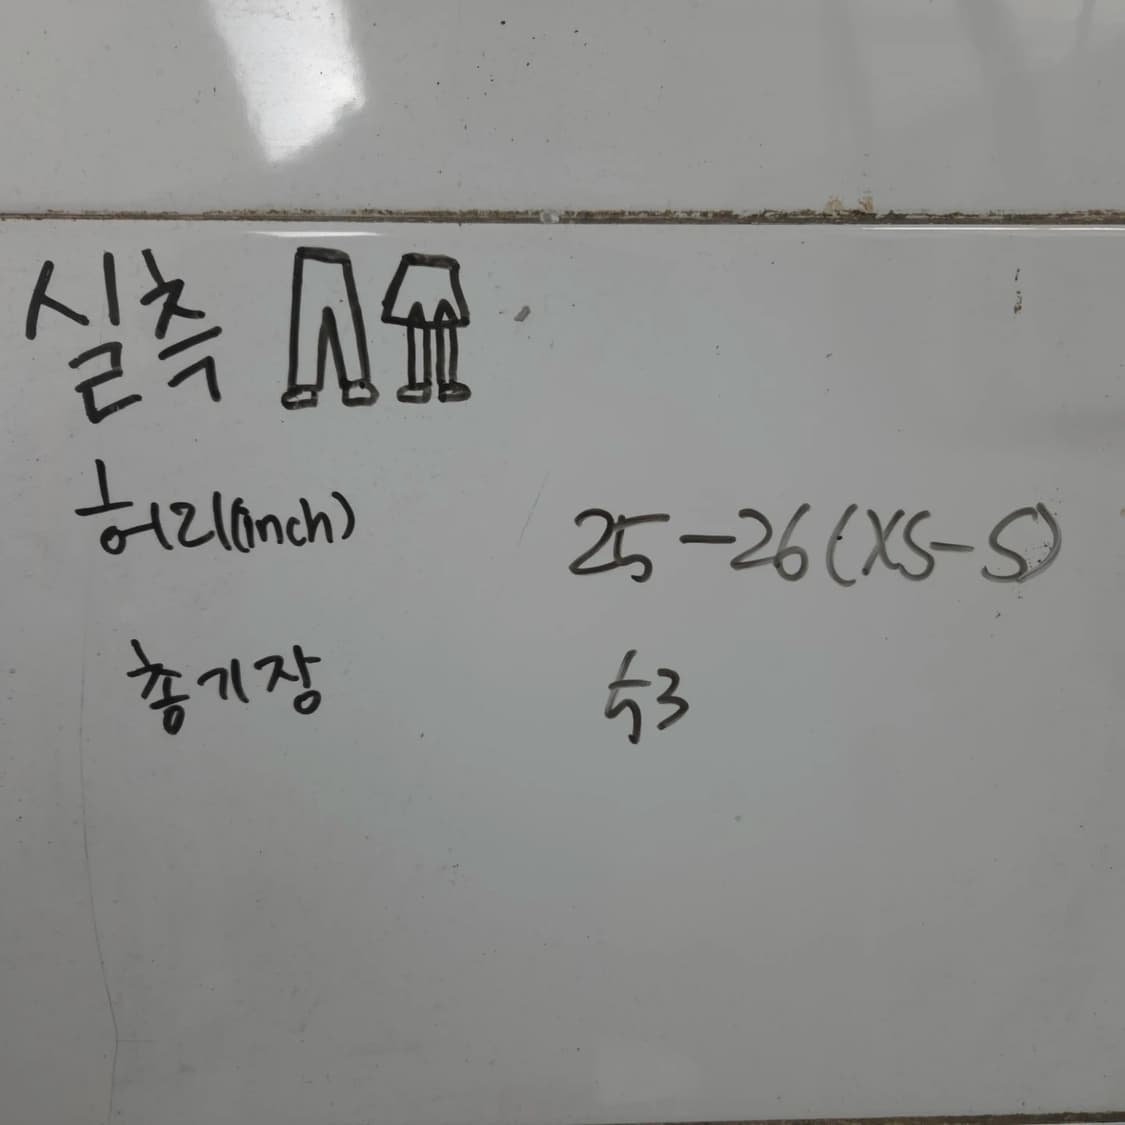 실측
허리(inch) 25-26(XS-S)
총기장 53